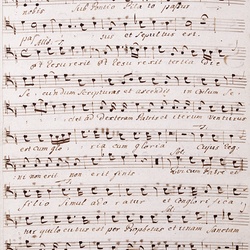 nobis Sub Pontio Pilato passus
passus et sepultus est.
et resurrexit et resurrexit tertia die
Secundum Scripturas et ascendit in coelum Se-
det ad dexteram Patris et iterum venturus
est cum gloria cum gloria Cujus reg-
ni non erit finis cum Patre et
Filio Simul adoratur et conglorifica-
tur qui locutus est per Prophetas et unam Sanctam